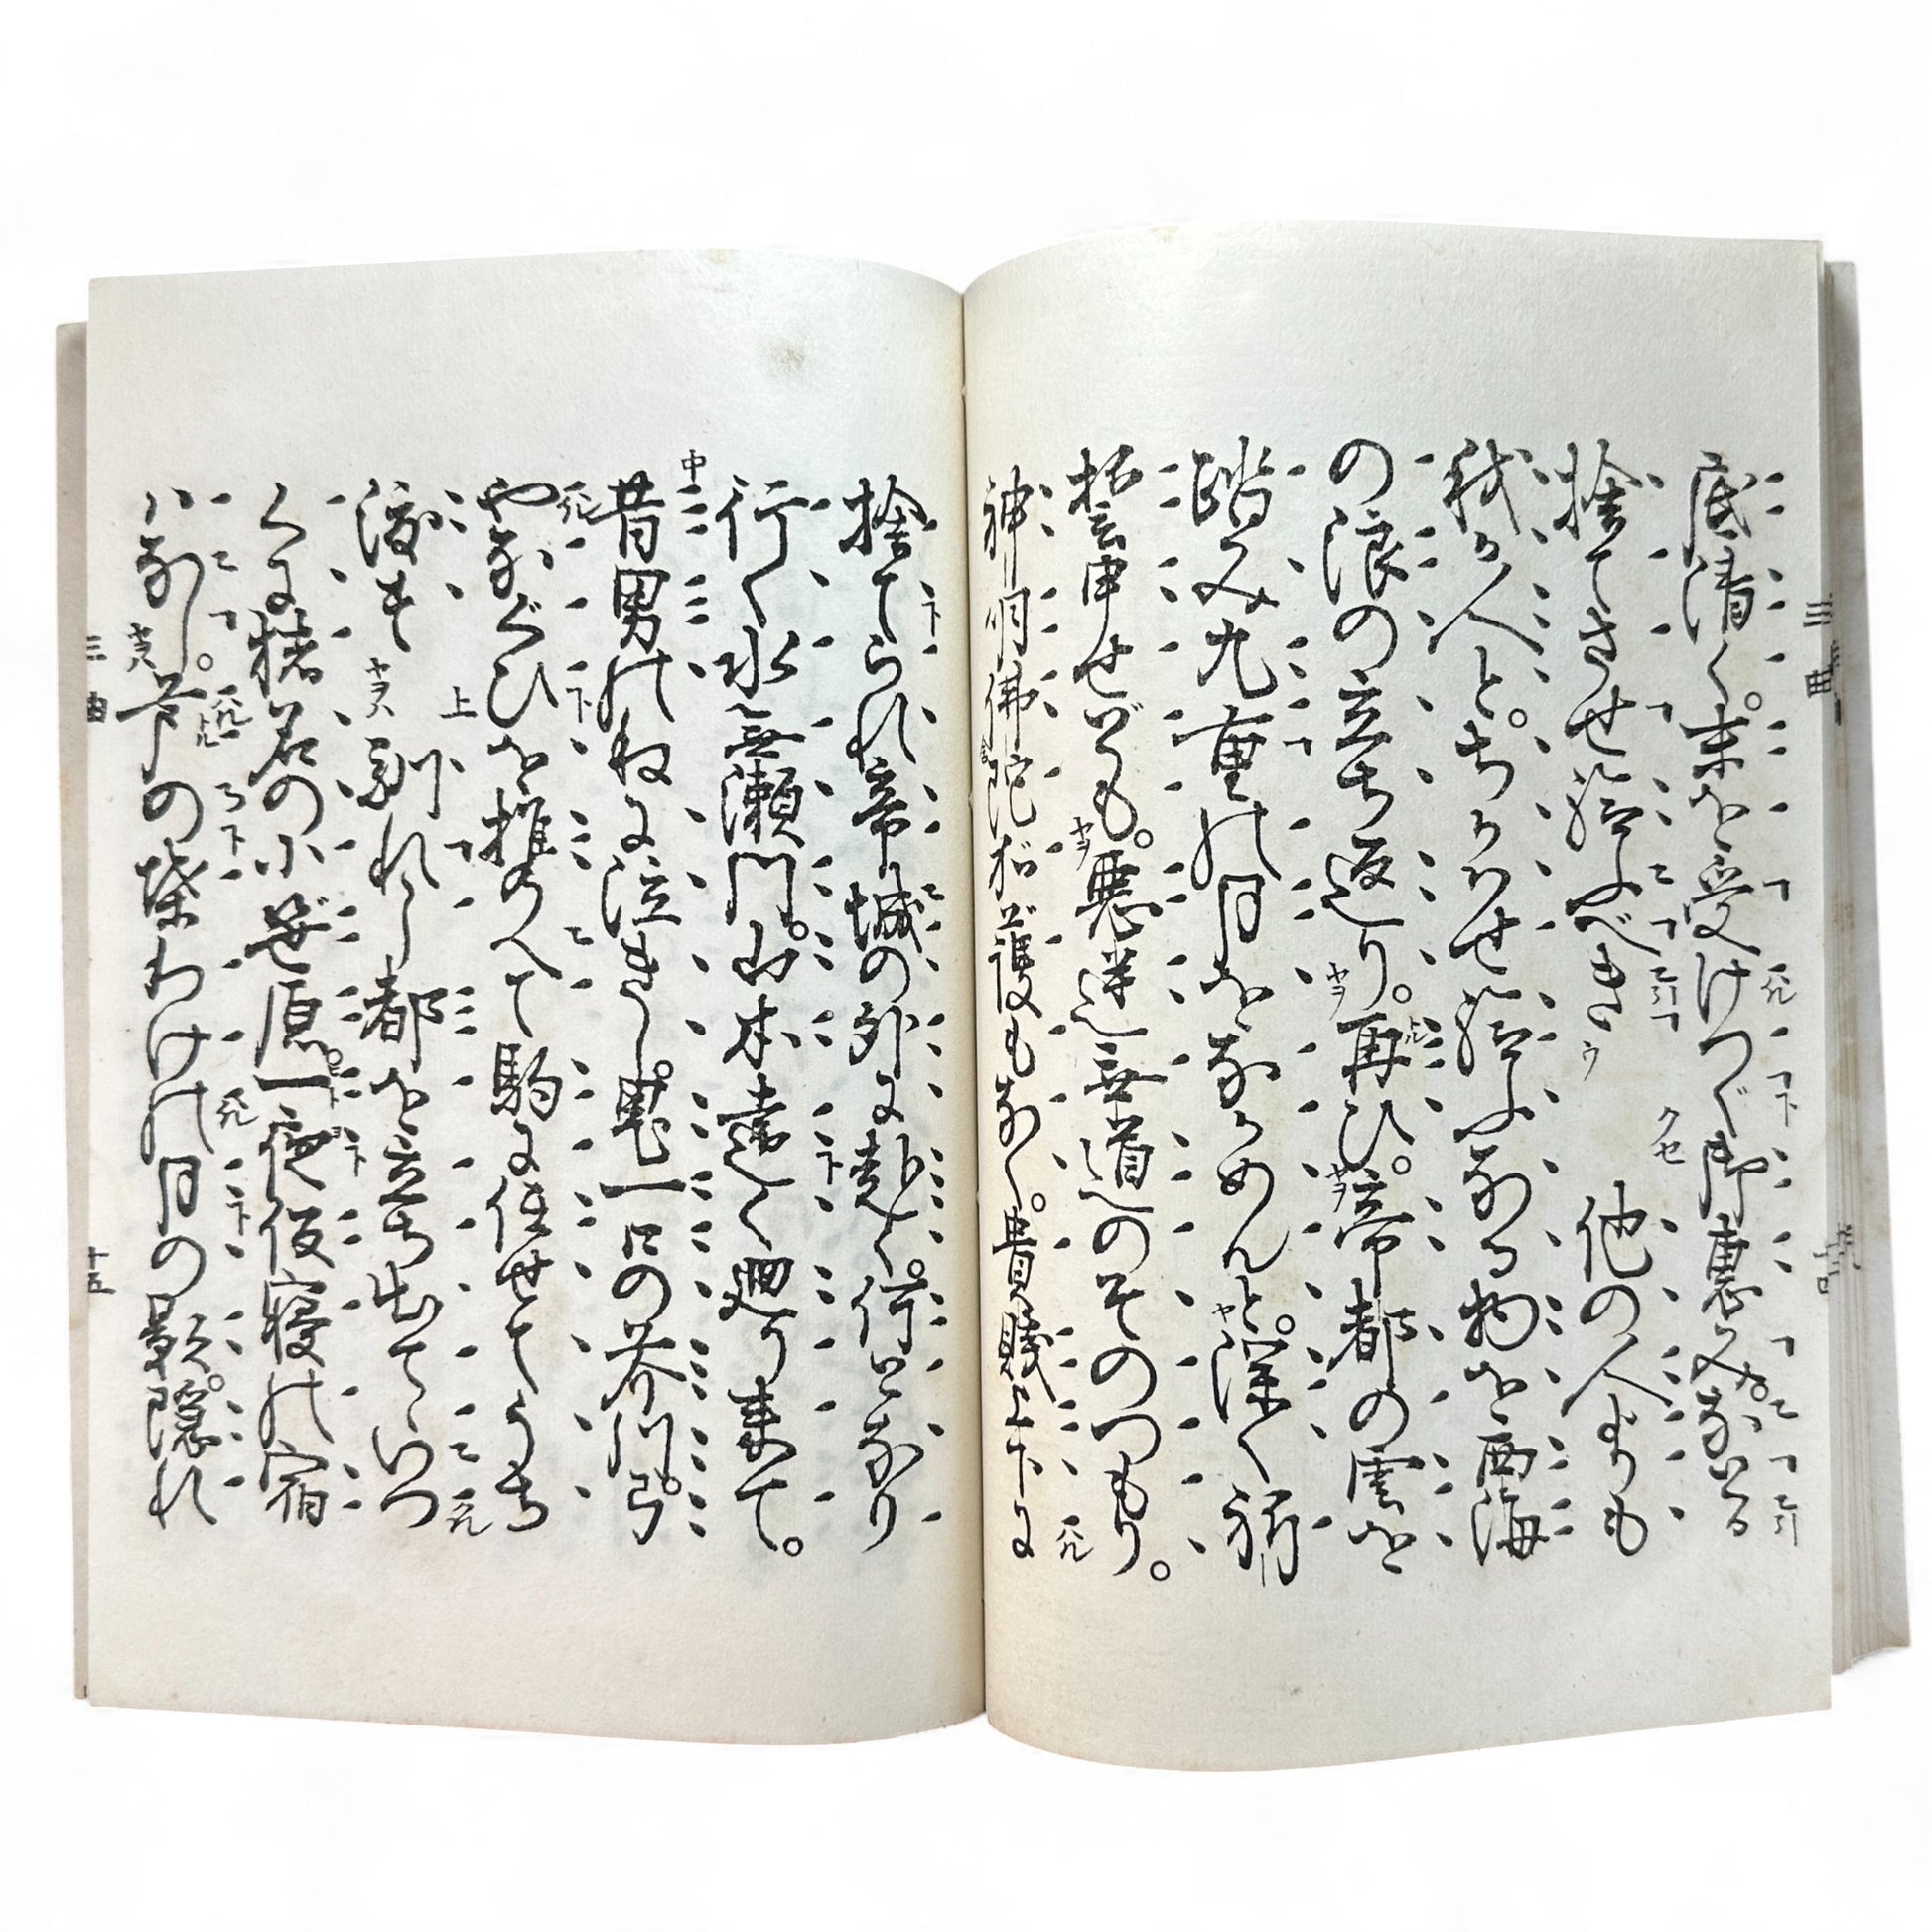 底清く。末を受けつぐ御恵み。なほも
捨てさせ給ふべき
他の人よりも
我が人と。ちかはせ給ふなる物を西海
の浪の立ち返り。再ひ。帝都の雲を
踏み九重の月をながめんと。深く祈
誓申せども。悪逆無道のそのつもり。
神明佛陀加護もなく。貴賤上下に
捨てられ帝城の外に赴く。何となり
行く水無瀬川。山本遠く廻り来て。
昔男のねに泣きし。鬼一口の芥川。弓
やなぐひを携へて駒に任せてうち
渡す
馴れし都を立ち出でて。いづ
くに猪名の小笹原。一夜仮寝の宿
はなし。芦の葉わけの月の影。隠れ
三曲
十五